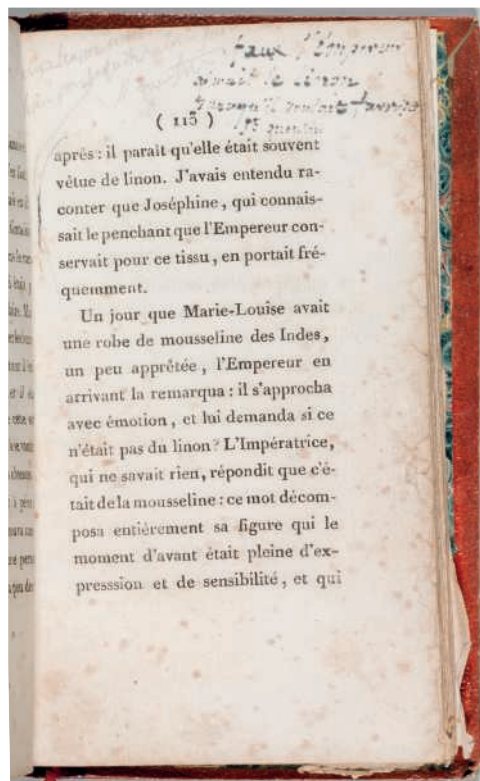 faux l'Empereur
aimait le linon
( 115 )
après : il paraît qu'elle était souvent
vêtue de linon. J'avais entendu ra-
conter que Joséphine, qui connais-
sait le penchant que l'Empereur con-
servait pour ce tissu, en portait fré-
quemment.
Un jour que Marie-Louise avait
une robe de mousseline des Indes,
un peu apprêtée, l'Empereur en
arrivant la remarqua : il s'approcha
avec émotion, et lui demanda si ce
n'était pas du linon? L'Impératrice,
qui ne savait rien, répondit que c'é-
tait de la mousseline : ce mot décom-
posa entiérement sa figure qui le
moment d'avant était pleine d'ex-
presssion et de sensibilité, et qui